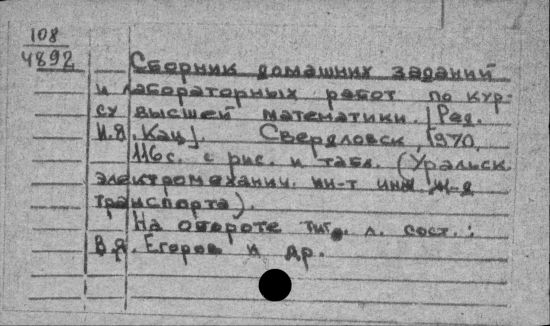 108
4892
Сборник домашних заданий
и лабораторных работ по кур-
су высшей математики. [Ред.
И.Я. Кац]. Свердловск, 1970.
116 с. с рис. и табл. (Уральск.
электромеханич. ин-т инж. ж-д
транспорта).
На обороте тит. л. сост.:
В.Я. Егоров и др.